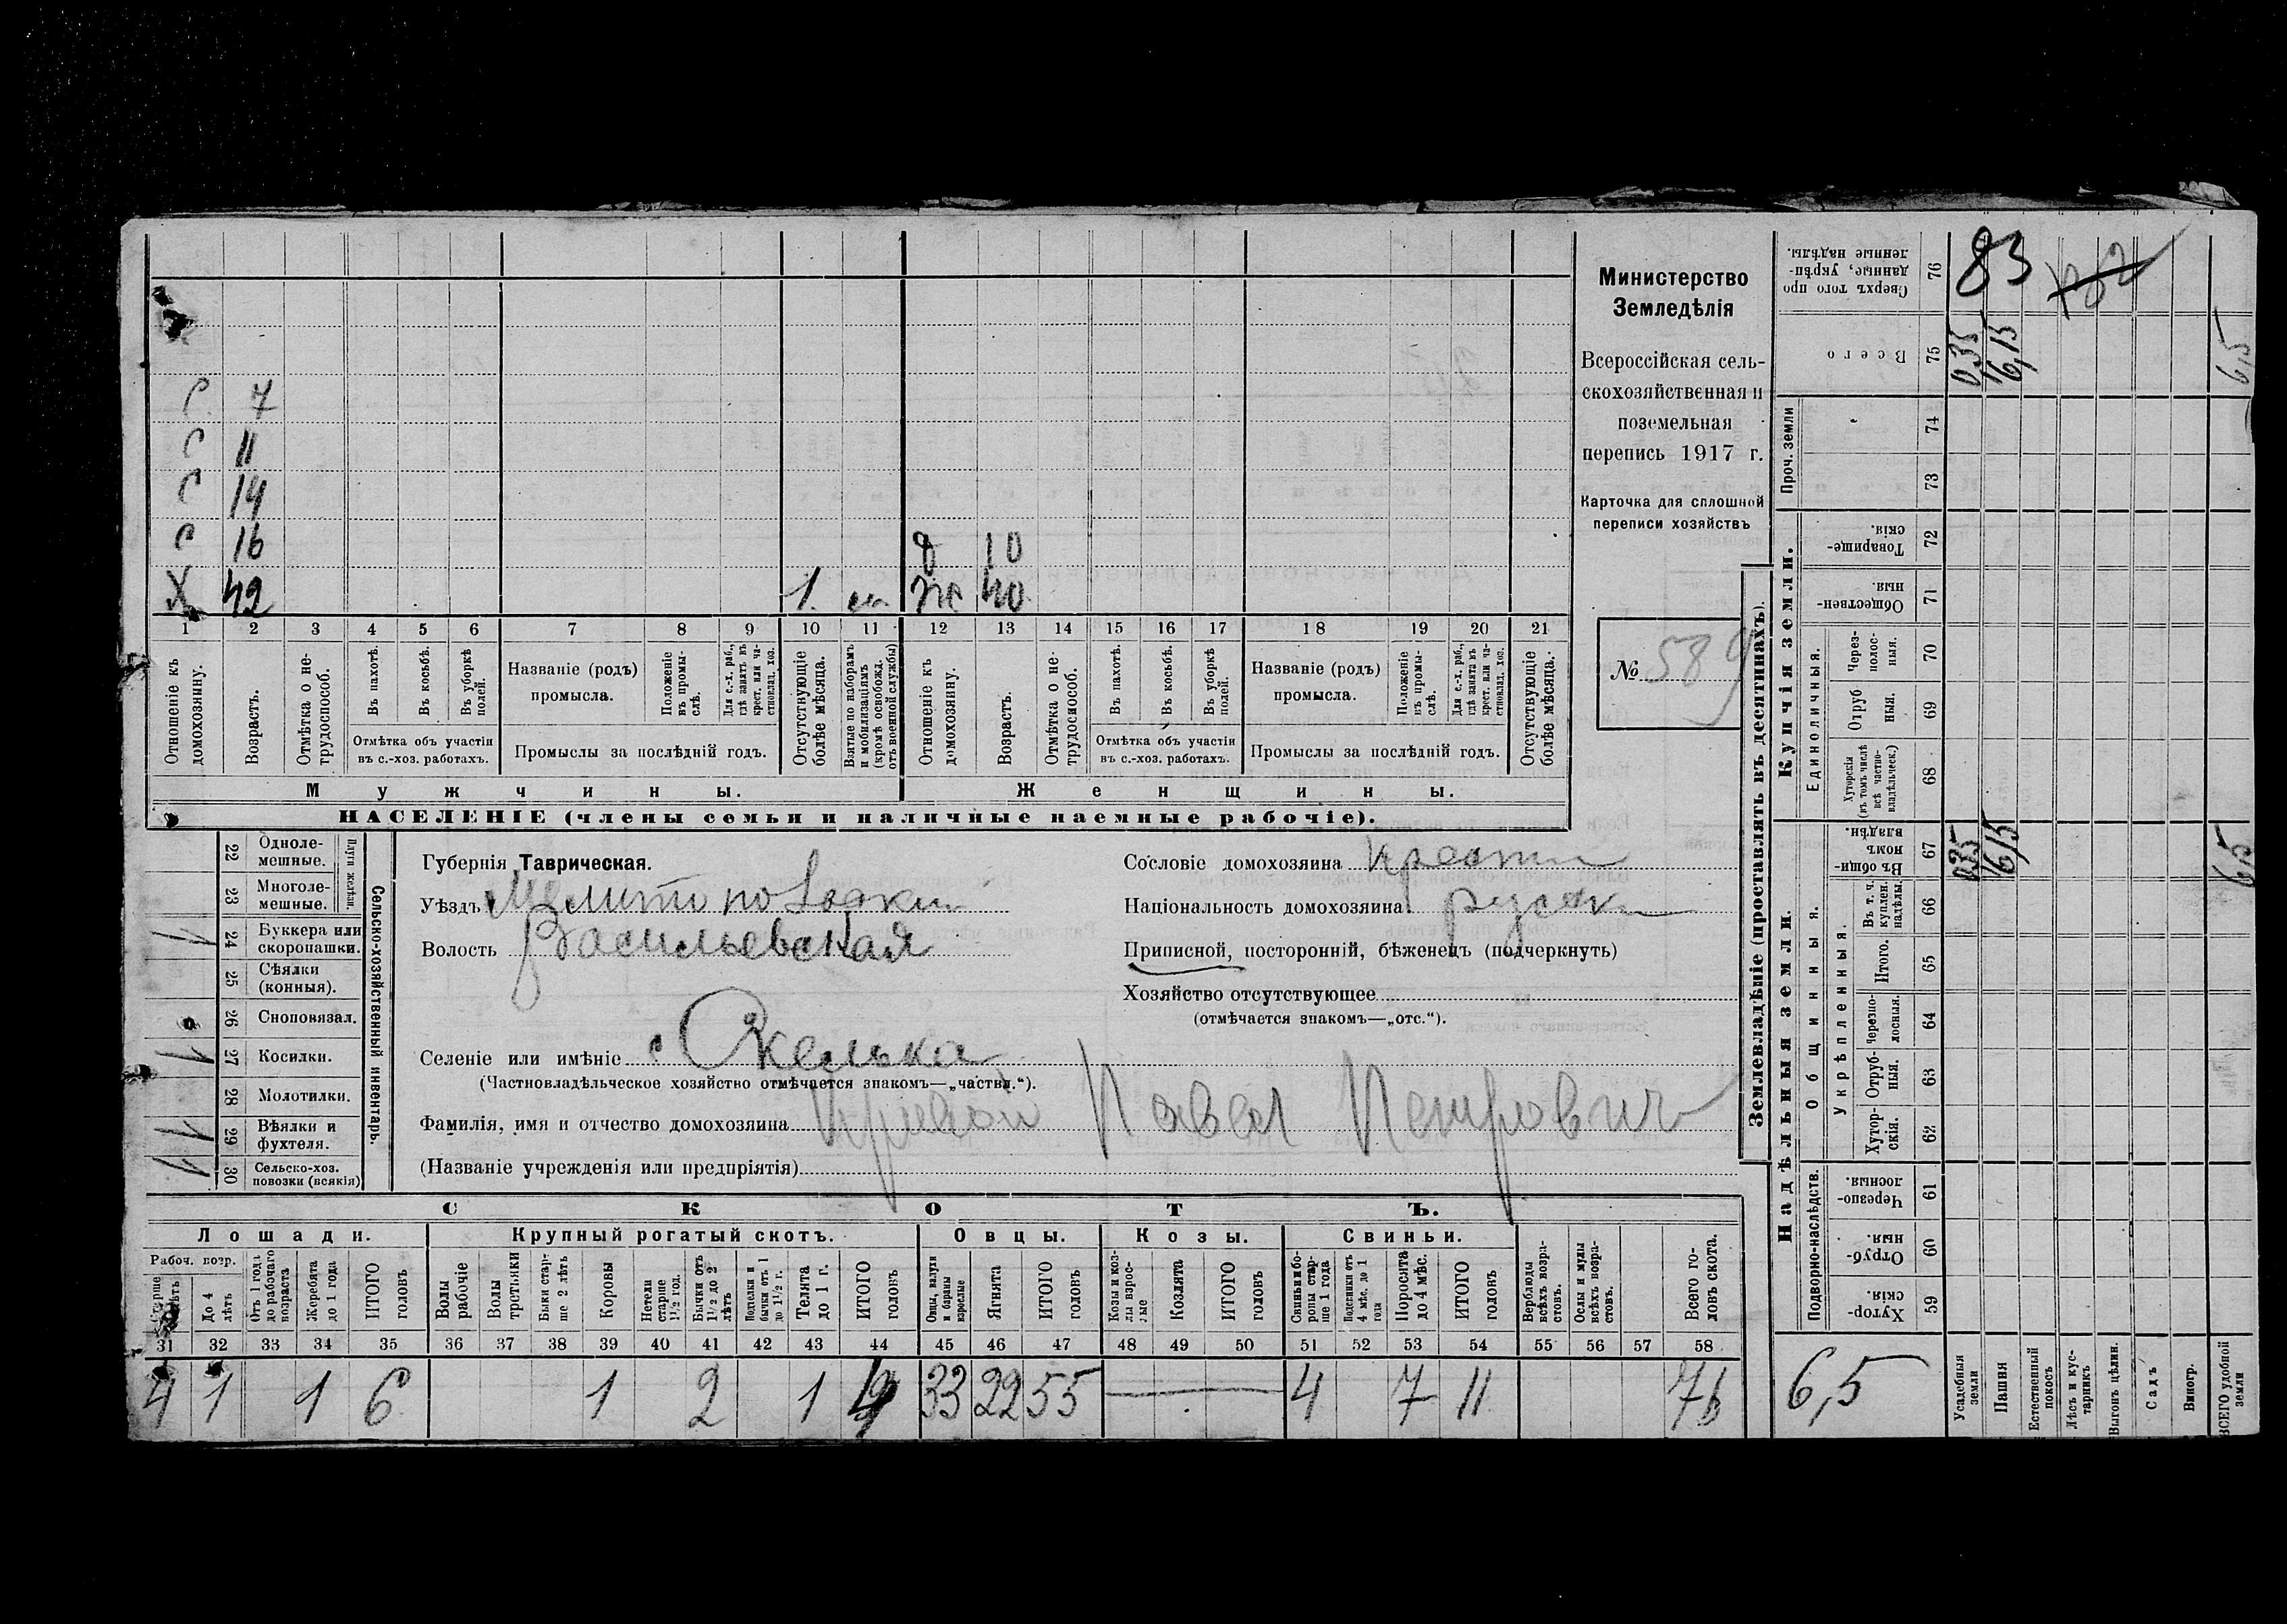 Министерство
Земледѣлія
Всероссійская сель-
скохозяйственная и
поземельная
перепись 1917 г.
Карточка для сплошной
переписи хозяйствъ
№ 589
С 7
С 11
С 14
С 16 д 10
Х 42 1. жс 40
1 2 3 4 5 6 7 8 9 10 11 12 13 14 15 16 17 18 19 20 21
Отношеніе къ домохозяину.
Возрастъ.
Отмѣтка о не-трудоспособ.
Въ пахотѣ.
Въ косьбѣ.
Въ уборкѣ полей.
Отмѣтка объ участіи
въ с.-хоз. работахъ.
Названіе (родъ)
промысла.
Положеніе въ промы-слѣ.
Для с.-х. раб., гдѣ занятъ въ крест. или ча-стновлад. хоз.
Промыслы за послѣдній годъ.
Отсутствующіе болѣе мѣсяца.
Взятые по наборамъ и мобилизаціямъ (кромѣ освобожд. отъ военной службы)
Отношеніе къ домохозяину.
Возрастъ.
Отмѣтка о не-трудоспособ.
Въ пахотѣ.
Въ косьбѣ.
Въ уборкѣ полей.
Отмѣтка объ участіи
въ с.-хоз. работахъ.
Названіе (родъ)
промысла.
Положеніе въ промы-слѣ.
Для с.-х. раб., гдѣ занятъ въ крест. или ча-стновлад. хоз.
Промыслы за послѣдній годъ.
Отсутствующіе болѣе мѣсяца.
Мужчины. Женщины.
НАСЕЛЕНІЕ (члены семьи и наличные наемные рабочіе).
Сельско-хозяйственный инвентарь.
Плуги желѣзн.
22 Одноле-мешные.
23 Многоле-мешные.
24 Буккера или скоропашки.
25 Сѣялки (конныя).
26 Сноповязал.
27 Косилки.
28 Молотилки.
29 Вѣялки и фухтеля.
30 Сельско-хоз. повозки (всякія)
Губернія Таврическая.
Уѣздъ Мелитопольскій
Волость Васильевская
Селеніе или имѣніе с Скелька
(Частновладѣльческое хозяйство отмѣчается знакомъ—„частвл.“).
Фамилія, имя и отчество домохозяина Кривой Павел Петрович
(Названіе учрежденія или предпріятія)
Сословіе домохозяина крестян
Національность домохозяина русск
Приписной, посторонній, бѣженецъ (подчеркнуть)
Хозяйство отсутствующее
(отмѣчается знакомъ—„отс.“).
СКОТЪ.
Лошади. Крупный рогатый скотъ. Овцы. Козы. Свиньи.
Рабоч. возр.
До 4 лѣтъ
Отъ 1 года до рабочаго возраста
Жеребята до 1 года
ИТОГО головъ
Волы рабочіе
Волы третьяки
Быки стар-ше 2 лѣтъ
Коровы
Нетели старше 1½ год.
Бычки отъ 1½ до 2 лѣтъ
Подтелки и бычки отъ 1 до 1½ г.
Телята до 1 г.
ИТОГО головъ
Овцы, валухи и бараны взрослые
Ягнята
ИТОГО головъ
Козы и коз-лы взрос-лые
Козлята
ИТОГО головъ
Свиньи и бо-ровы стар-ше 1 года
Подсвинки отъ 4 мѣс. до 1 года
Поросята до 4 мѣс.
ИТОГО головъ
Верблюды всѣхъ возра-стовъ.
Ослы и мулы всѣхъ возра-стовъ.
Всего го-ловъ скота.
31 32 33 34 35 36 37 38 39 40 41 42 43 44 45 46 47 48 49 50 51 52 53 54 55 56 57 58
4 1 1 6 1 2 1 4 33 22 55 4 7 11 76
Землевладѣніе (проставлять въ десятинахъ).
Надѣльныя земли. Купчія земли. Проч. земли
Подворно-наслѣдств.
Общинныя.
Укрѣпленныя.
Единоличныя.
59 Хутор-скія.
60 Отруб-ныя.
61 Черезпо-лосныя.
62 Хутор-скія.
63 Отруб-ныя.
64 Черезпо-лосныя.
65 Итого.
66 Въ т. ч. куплен. надѣлы.
67 Въ общи-номъ владѣн. 0,35 6,15 6,5
68 Хуторскія (въ томъ числѣ всѣ частно-владѣльческ.)
69 Отруб ныя.
70 Через-полос-ныя.
71 Обществен-ныя
72 Товарище-скія.
73
74
75 Всего 0,35 6,15 6,5
76 Сверхъ того про данные, укрѣп-ленные надѣлы.
83
6,5
Усадебныя земли
Пашня
Естественный покосъ
Лѣсъ и кус-тарникъ
Выгонъ цѣлин.
Садъ
Виногр.
ВСЕГО удобной земли